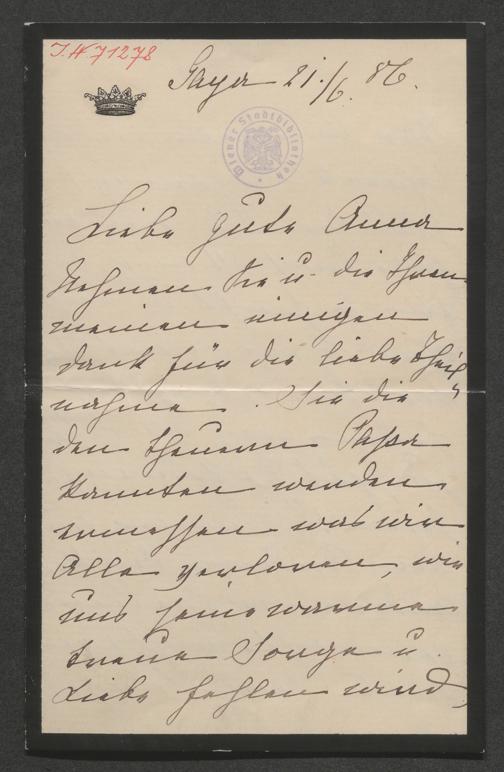 I.N 71278
Gaya 21./6. 86.
Wiener Stadtbibliothek
Liebe gute Anna
Nehmen Sie u die Ihren
meinen innigen
dank für die liebe Theil
nahme. Sie die
den theuern Papa
kannten werden
ermessen was wir
Alle verloren, wie
uns seine warme
treue Sorge u.
Liebe fehlen wird,